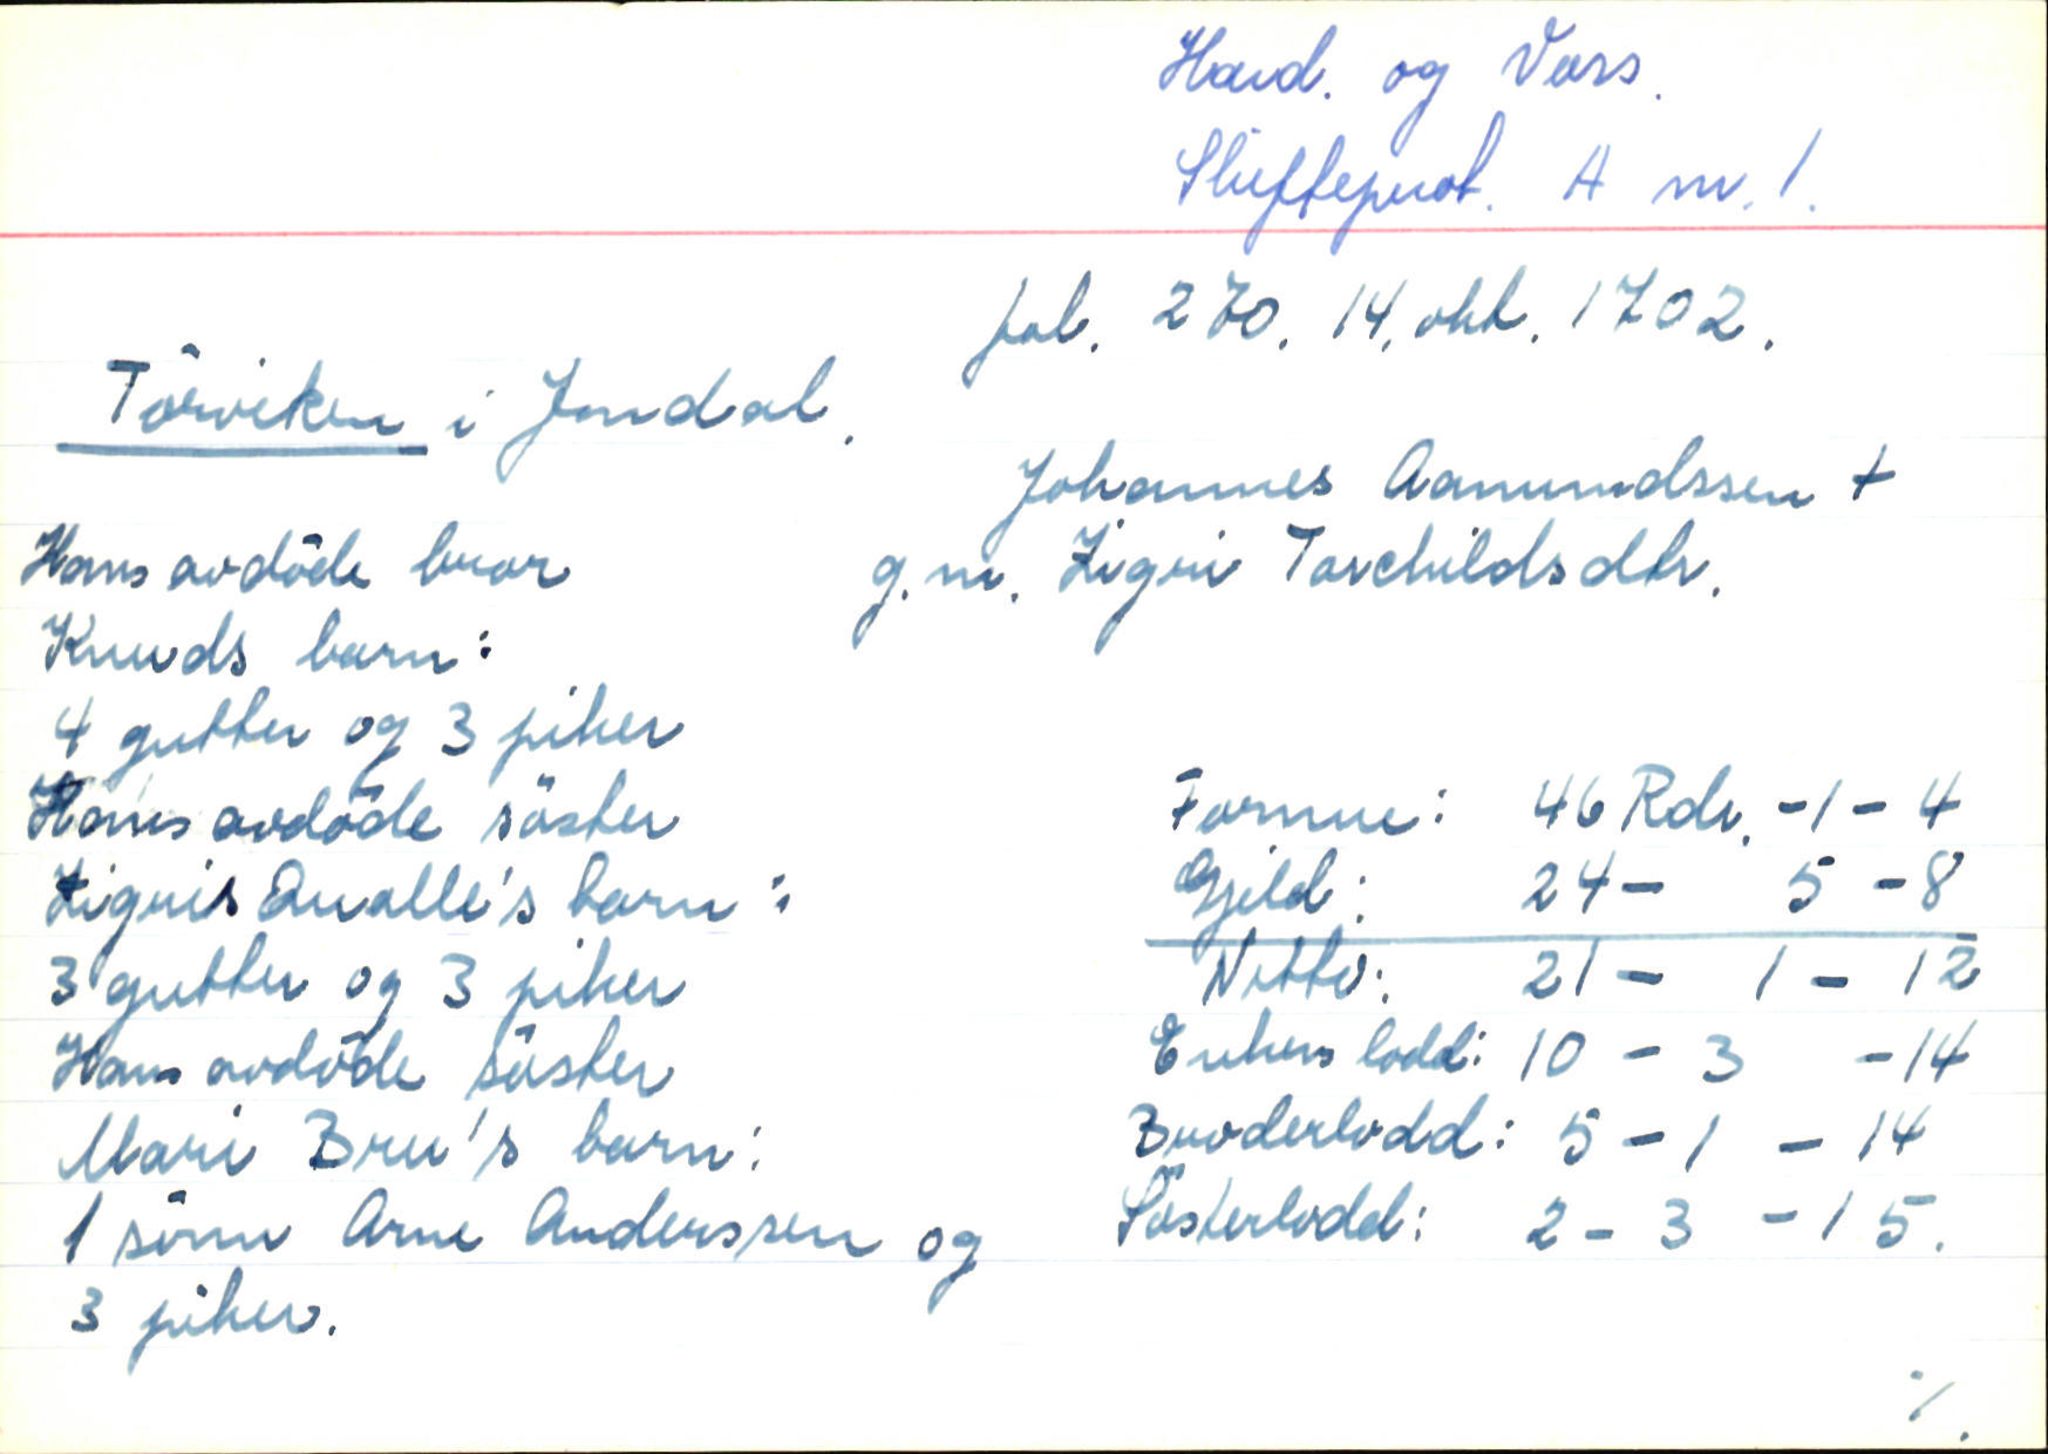 Hard. og Voss.
Skifteprot. A nr. 1.
fol. 270. 14. okt. 1702.
Törviken i Jondal.
Johannes Aamundssen +
g. m. Zigri Torchildsdtr.
Hans avdöde bror
Knuds barn:
4 gutter og 3 piker
Hans avdöde söster
Zigris Qualle's barn:
3 gutter og 3 piker
Hans avdöde söster
Mari Bru's barn:
1 sönn Arne Anderssen og
3 piker.
Formue: 46 Rdr. - 1 - 4
Gjeld: 24 - 5 - 8
Netto: 21 - 1 - 12
Enkens lodd: 10 - 3 - 14
Broderlodd: 5 - 1 - 14
Sösterlodd: 2 - 3 - 15.